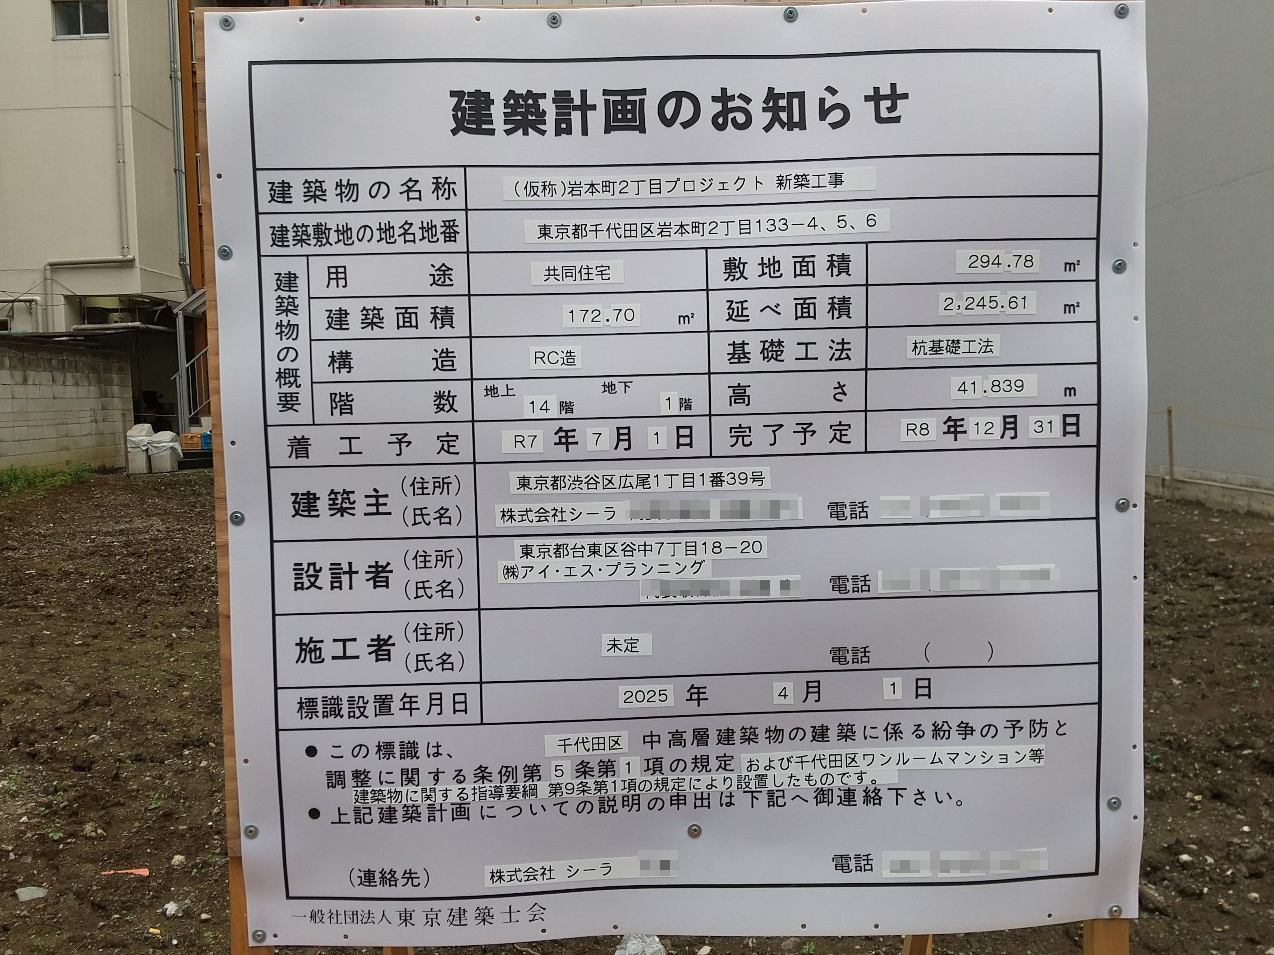 建築計画のお知らせ
建築物の名称 (仮称)岩本町2丁目プロジェクト 新築工事
建築敷地の地名地番 東京都千代田区岩本町2丁目133-4、5、6
建築物の概要
用途 共同住宅 敷地面積 294.78 m²
建築面積 172.70 m² 延べ面積 2,245.61 m²
構造 RC造 基礎工法 杭基礎工法
階数 地上 14階 地下 1階 高さ 41.839 m
着工予定 R7年7月1日 完了予定 R8年12月31日
建築主 (住所) 東京都渋谷区広尾1丁目1番39号
(氏名) 株式会社シーラ 電話
設計者 (住所) 東京都台東区谷中7丁目18-20
(氏名) ㈱アイ・エス・プランニング
電話
施工者 (住所) (氏名) 未定 電話 ( )
標識設置年月日 2025年 4月 1日
● この標識は、千代田区 中高層建築物の建築に係る紛争の予防と
調整に関する条例第5条第1項の規定および千代田区ワンルームマンション等
建築物に関する指導要綱 第9条第1項の規定により設置したものです。
● 上記建築計画についての説明の申出は下記へ御連絡下さい。
(連絡先) 株式会社 シーラ 電話
一般社団法人東京建築士会